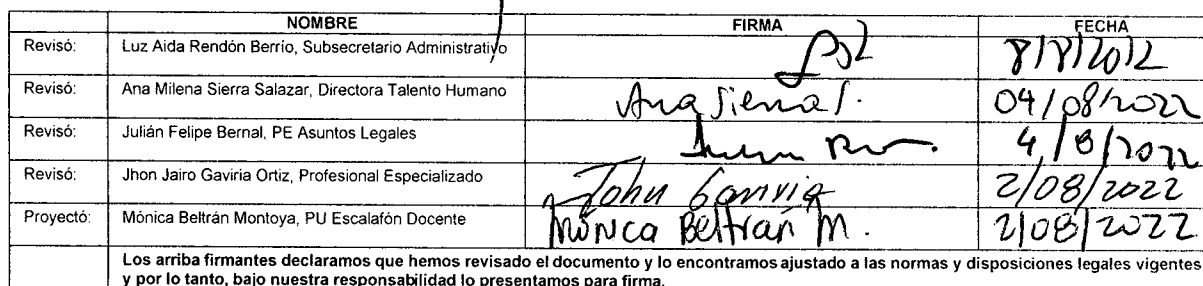 NOMBRE FIRMA FECHA
Revisó: Luz Aida Rendón Berrío, Subsecretario Administrativo 8/8/2012
Revisó: Ana Milena Sierra Salazar, Directora Talento Humano Ana Sierra S. 04/08/2022
Revisó: Julián Felipe Bernal, PE Asuntos Legales 4/8/2022
Revisó: Jhon Jairo Gaviria Ortiz, Profesional Especializado John Gaviria 2/08/2022
Proyectó: Mónica Beltrán Montoya, PU Escalafón Docente Mónica Beltrán M. 2/08/2022
Los arriba firmantes declaramos que hemos revisado el documento y lo encontramos ajustado a las normas y disposiciones legales vigentes
y por lo tanto, bajo nuestra responsabilidad lo presentamos para firma.